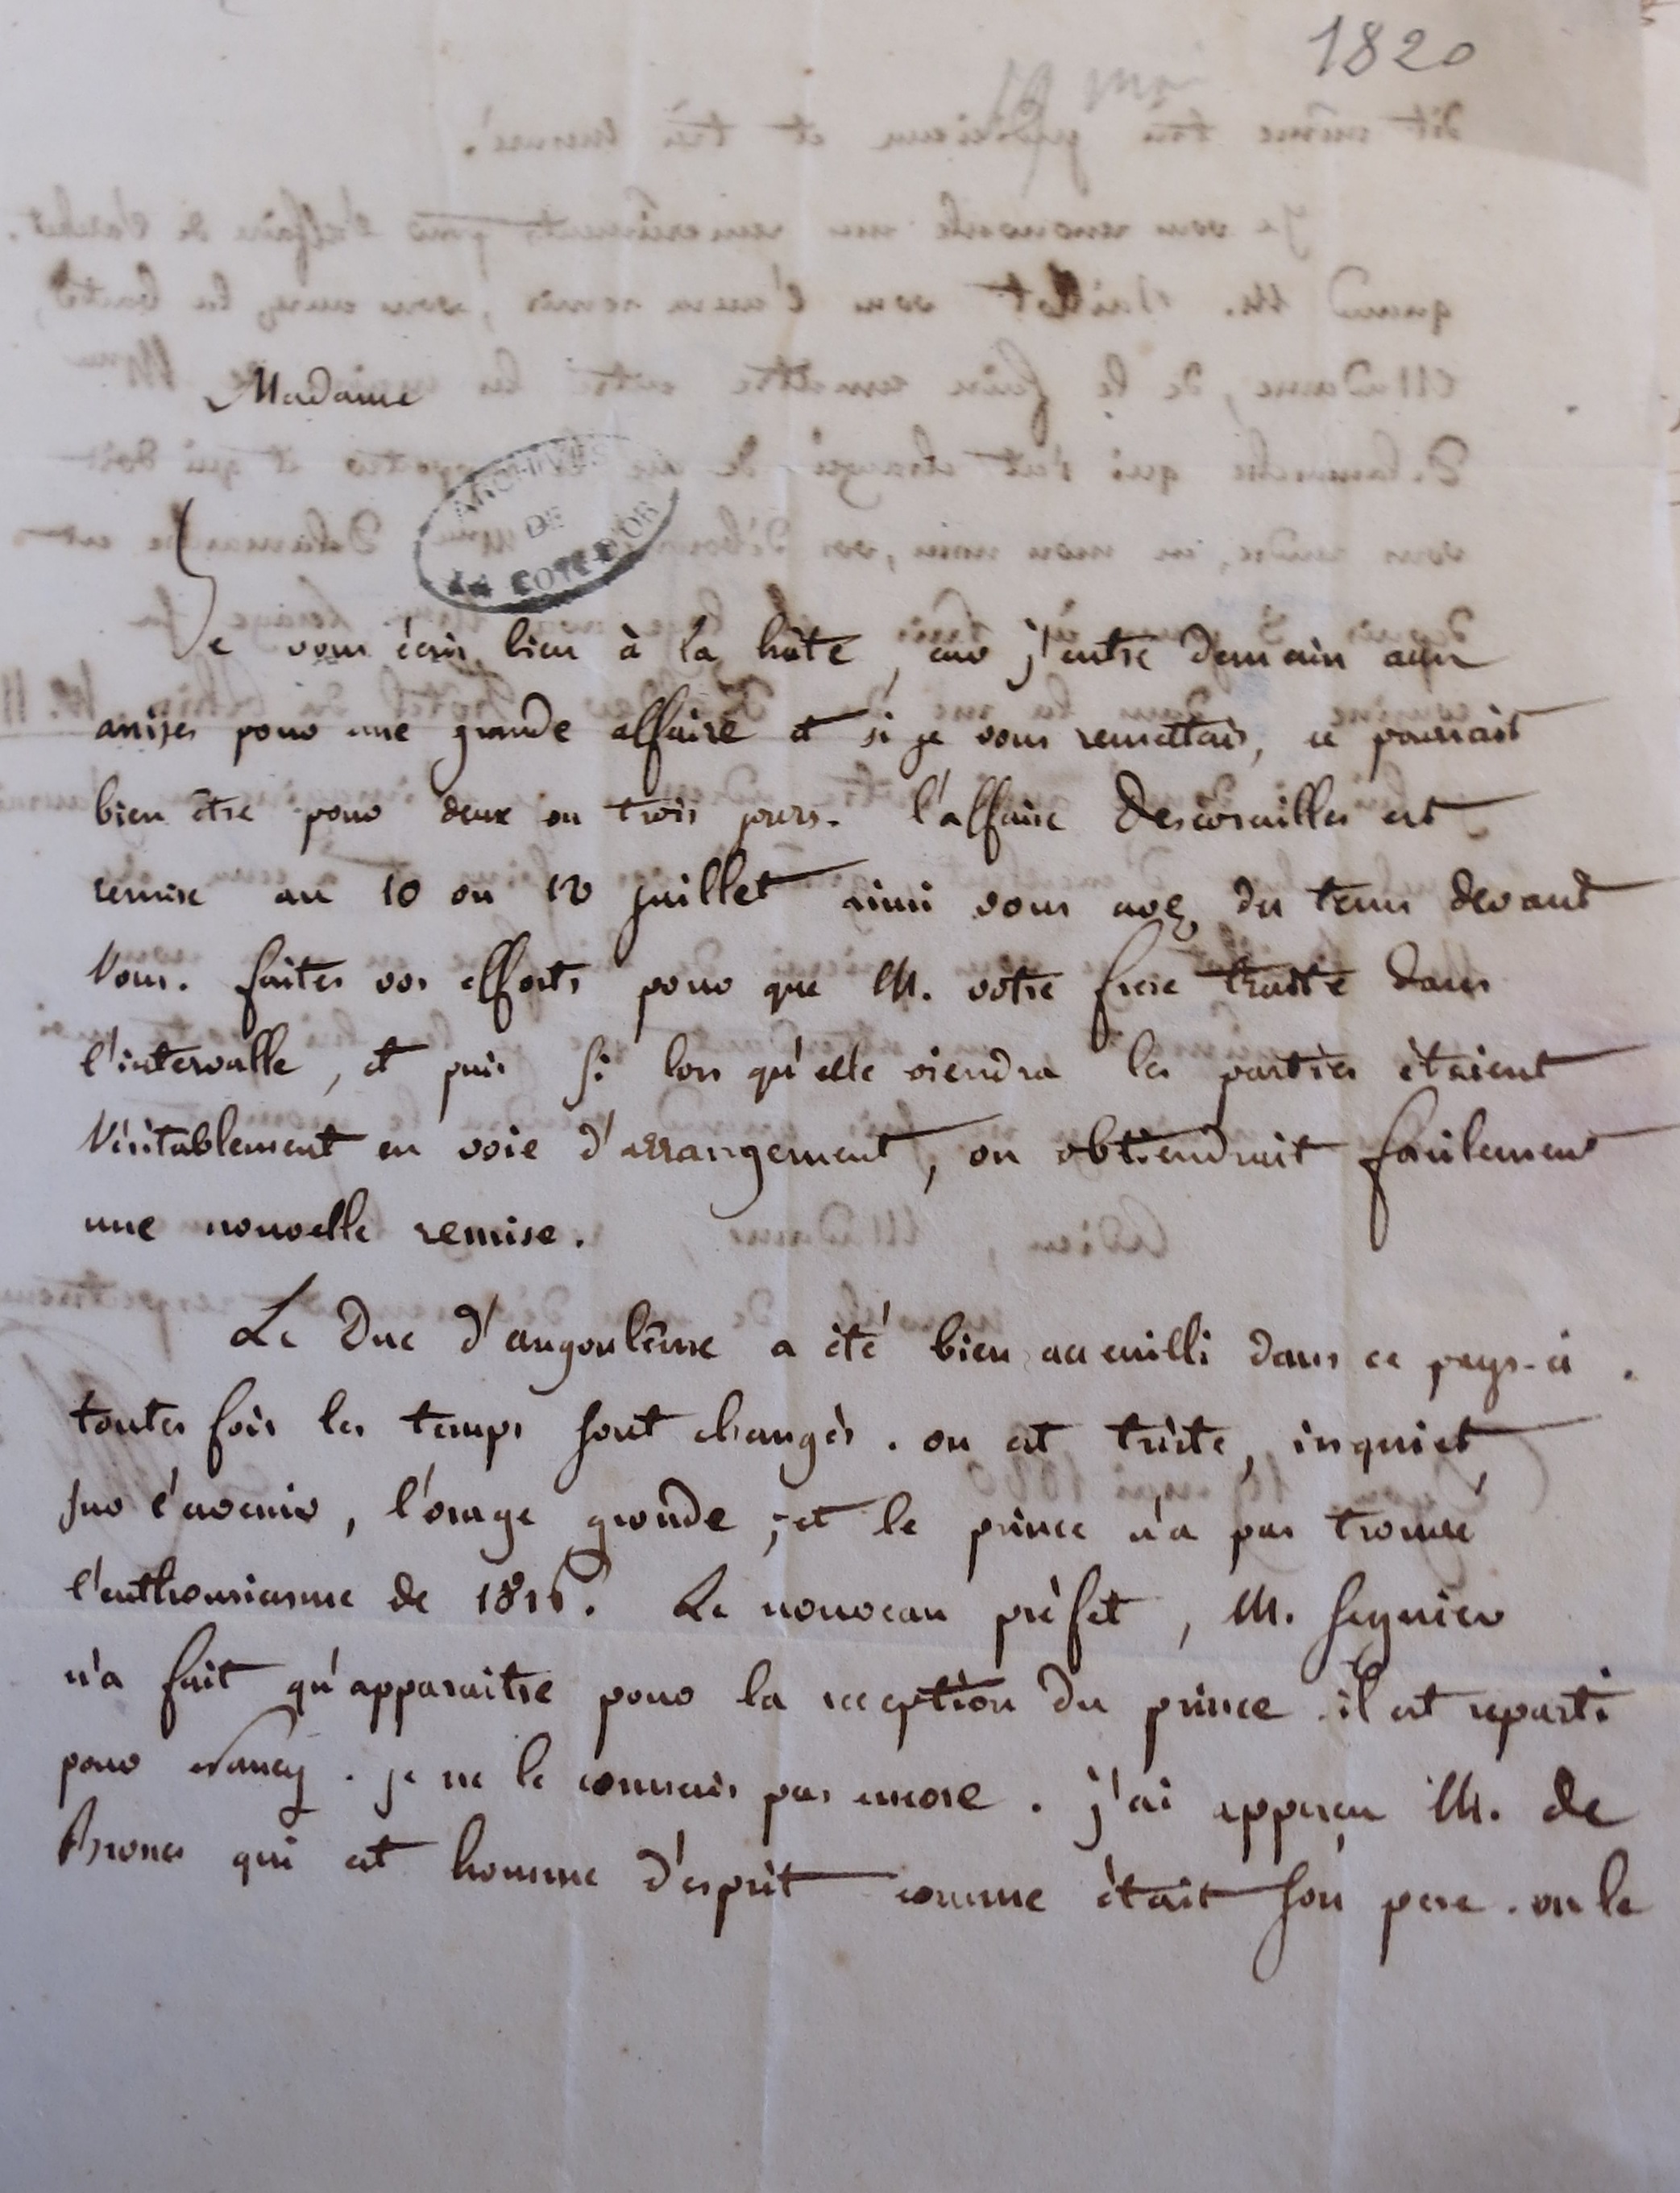 1820
19 mai
Madame
ARCHIVES
DE
LA COTE-D'OR
Je vous écris bien à la hâte, car j'entre demain aux
assises pour une grande affaire et si je vous remettais, ce pourrait
bien être pour deux ou trois jours. l'affaire Descorailles est
remise au 10 ou 12 juillet ainsi vous avez du tems devant
Vous. faites vos efforts pour que M. votre frere traite dans
l'intervalle, et puis si lors qu'elle viendra les parties étaient
Véritablement en voie d'arrangement, on obtiendrait facilement
une nouvelle remise.
Le Duc d'angoulême a été bien accueilli dans ce pays-ci.
toutes fois les temps sont changés. on est triste, inquiet
sur l'avenir, l'orage gronde ; et le prince n'a pas trouvé
l'enthousiasme de Le nouveau préfet, M. Seguier
n'a fait qu'apparaitre pour la reception du prince. il est reparti
pour Nancy. je ne le connais pas encore. j'ai apperçu M. de
Brosses qui est homme d'esprit comme était son pere. on le